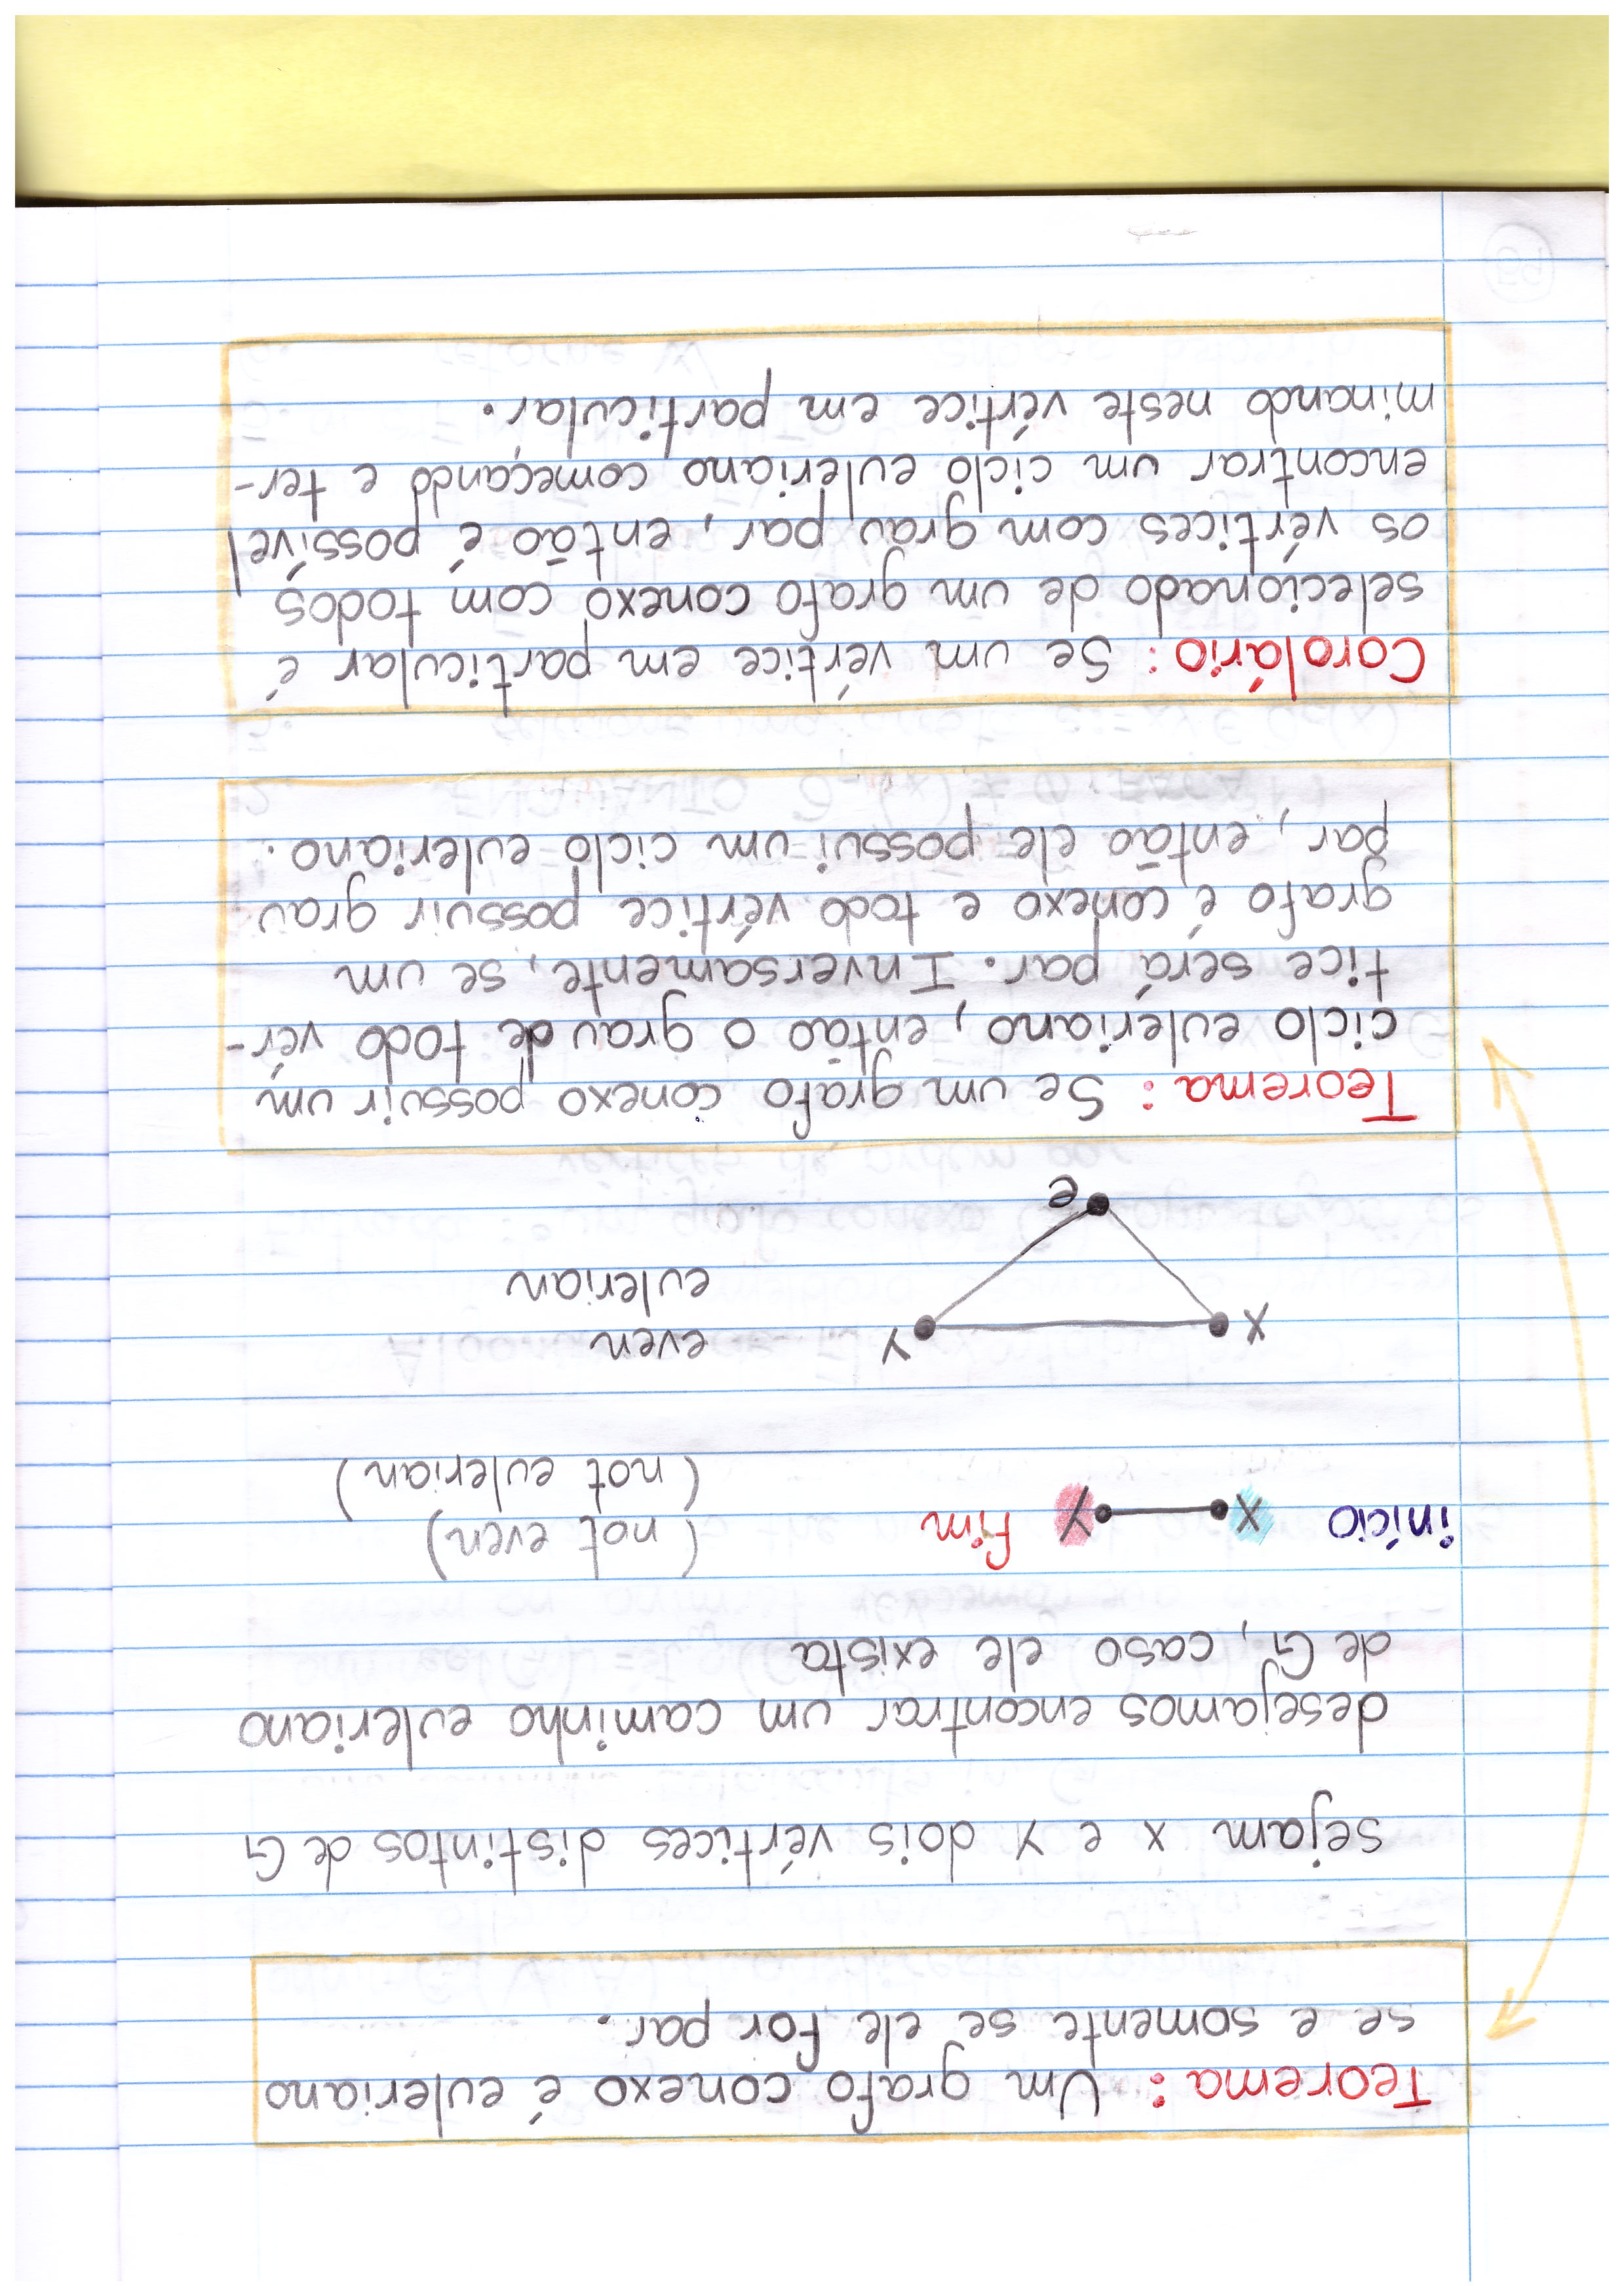 Teorema: Um grafo conexo é euleriano
se e somente se ele for par.
sejam x e y dois vértices distintos de G
desejamos encontrar um caminho euleriano
de G, caso ele exista
início x y fim (not even)
(not eulerian)
x y even
eulerian
e
Teorema: Se um grafo conexo possuir um
ciclo euleriano, então o grau de todo vér-
tice será par. Inversamente, se um
grafo é conexo e todo vértice possuir grau
par, então ele possui um ciclo euleriano.
Corolário: Se um vértice em particular é
selecionado de um grafo conexo com todos
os vértices com grau par, então é possível
encontrar um ciclo euleriano começando e ter-
minando neste vértice em particular.